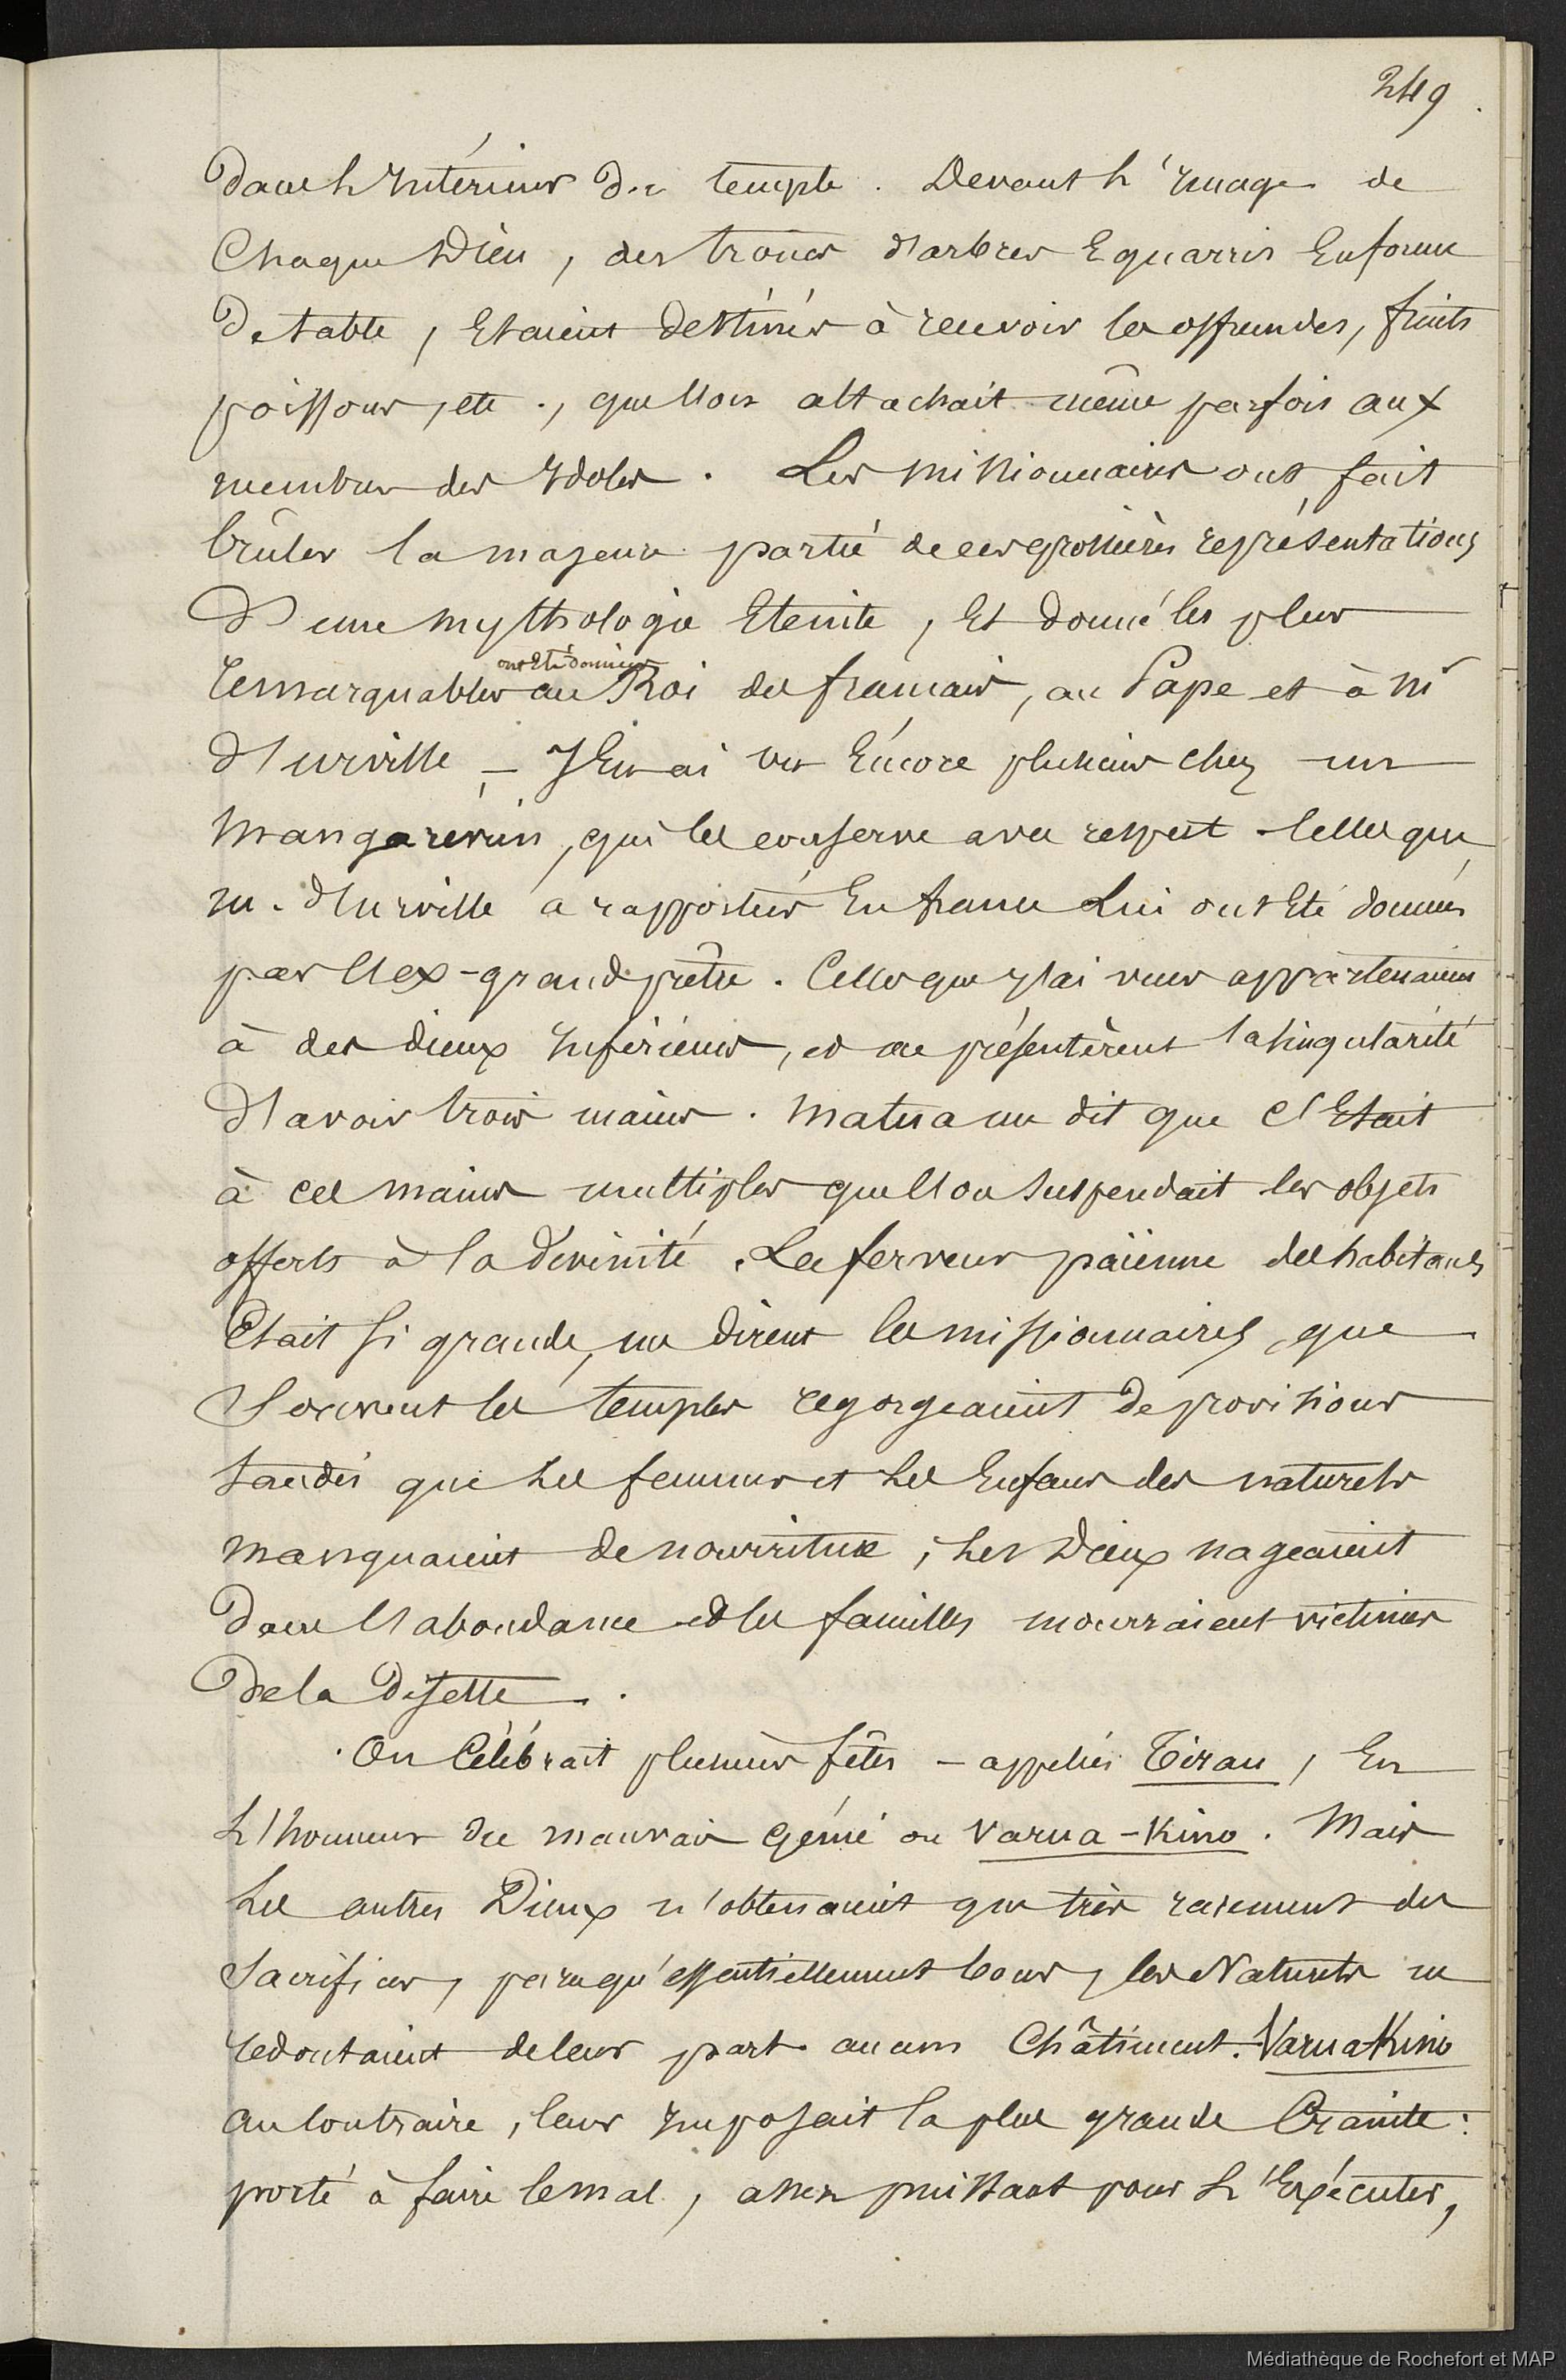 249.
dans l'Intérieur du temple. Devant l'Image de
Chaque Dieu, des troncs d'arbres Equarris En forme
de table, Etaient destinés à recevoir les offrandes, fruits
poissons, etc., que l'on attachait même parfois aux
membres des Idoles. Les missionnaires ont fait
brûler la majeure partie de ces grossières représentations
d'une mythologie Eteinte, Et donné les plus
remarquables ont Eté données au Roi des français, au Pape et à Mr
d'urville — J'En ai vu Encore plusieurs chez un
mangarévien, qui les conserve avec respect. Celles que
m. d'urville a rapportées En france Lui ont Eté données
par l'ex-grand prêtre. Celles que j'ai vues appartenaient
à des dieux Inférieurs, et me présentèrent la singularité
d'avoir trois mains. Matua me dit que c'Etait
à ces mains multiples que l'on suspendait les objets
offerts à la divinité. La ferveur païenne des habitans
Etait si grande, me dirent les missionnaires, que
souvent les temples regorgeaient de provisions
tandis que les femmes et les Enfans des naturels
manquaient de nourriture ; les Dieux nageaient
dans l'abondance et les familles mourraient victimes
de la disette.
On Célébrait plusieurs fêtes — appelées Tirau, En
L'honneur du mauvais génie ou Varua-Kino. Mais
Les autres Dieux n'obtenaient que très rarement des
Sacrifices, parce qu'essentiellement bons, les Naturels ne
redoutaient de leur part aucun Châtiment. Varua Kino
au Contraire, leur Imposait la plus grande Crainte :
porté à faire le mal, assez puissant pour L'Exécuter,
Médiathèque de Rochefort et MAP